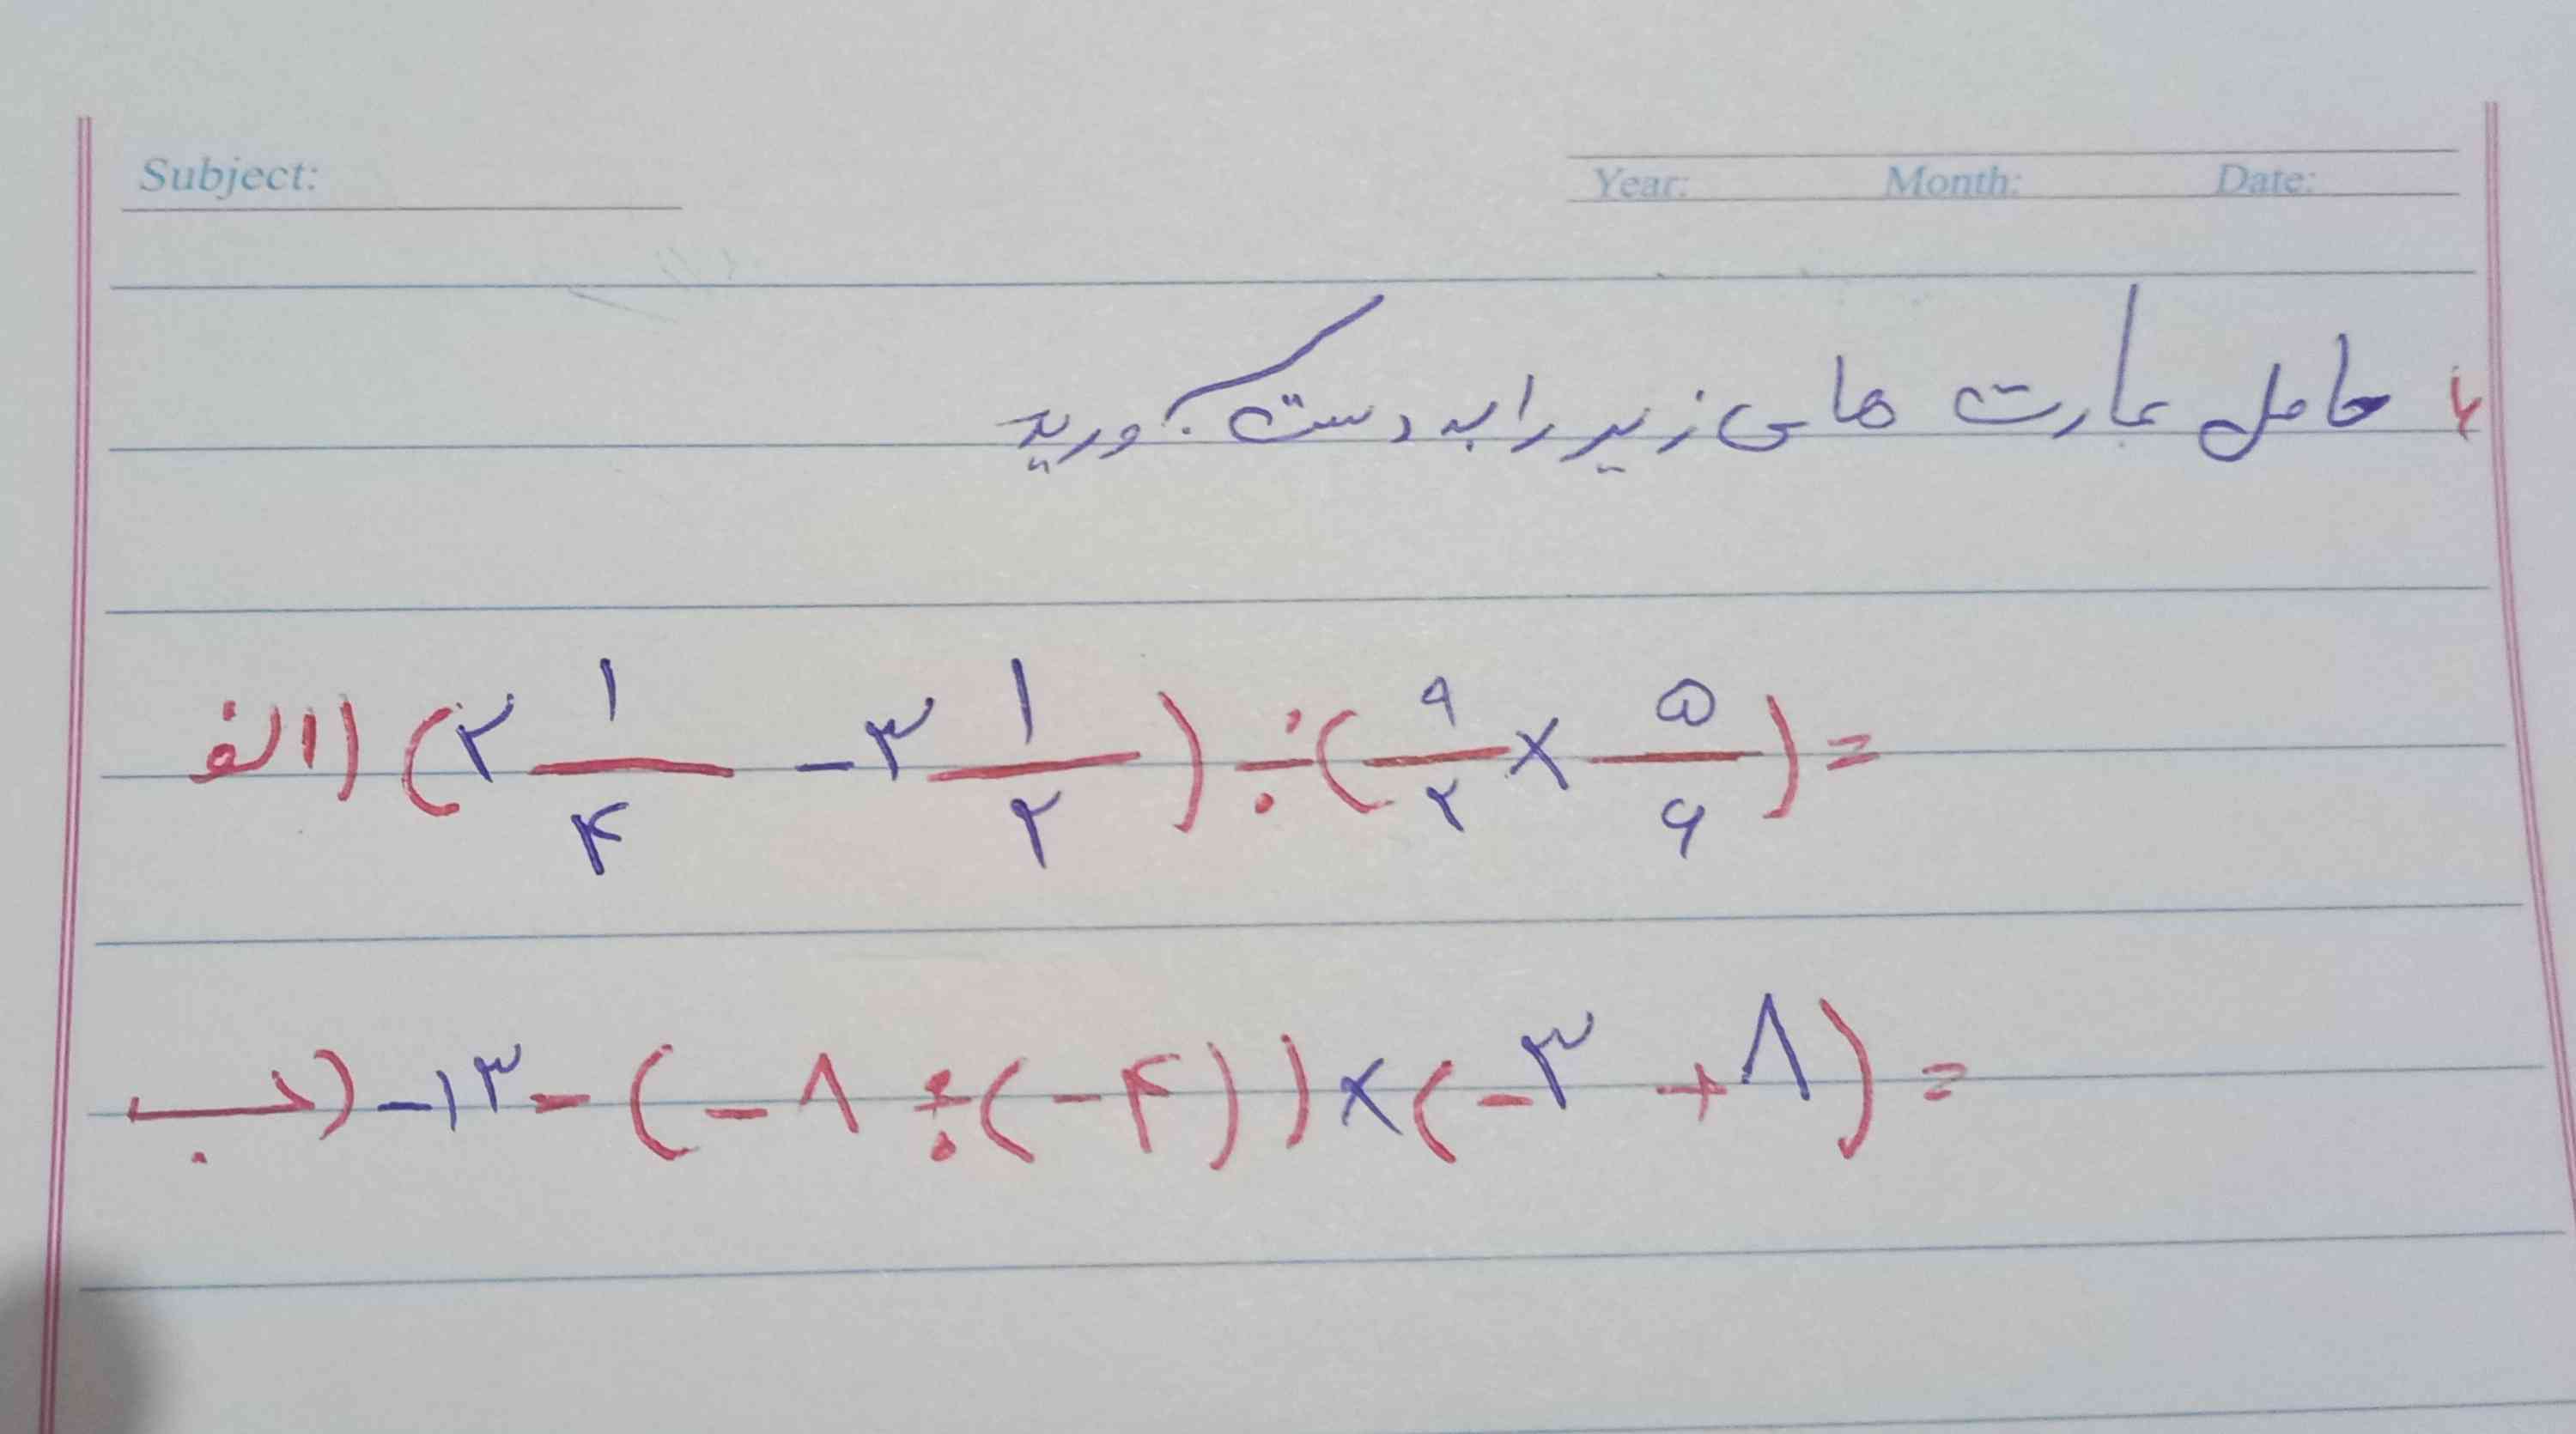 Subject:
Year: Month: Date:
۲ حاصل عبارت های زیر را به دست آورید
الف) (۲ ۱/۴ - ۳ ۱/۲) ÷ (۹/۲ × ۵/۶) =
ب) -۱۳ - (-۸ ÷ (-۴)) × (-۳ + ۸) =